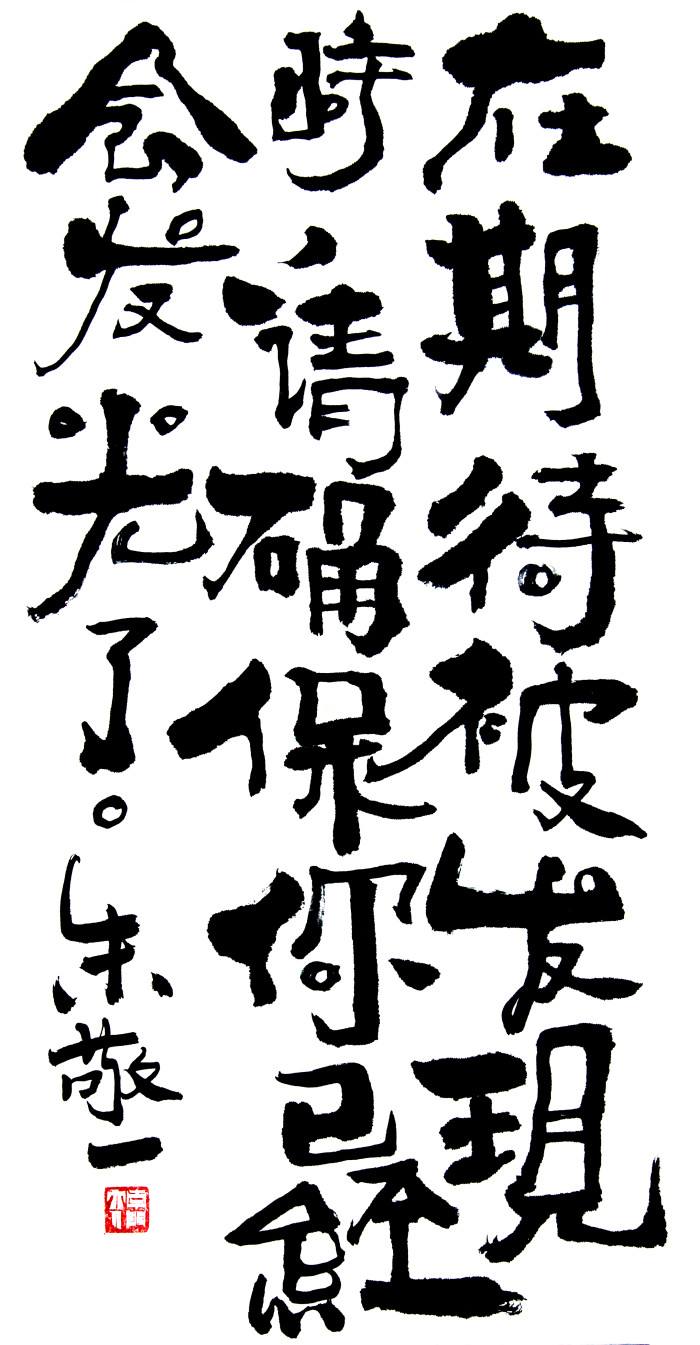 在期待被发現
時、请确保你已經
会发光了。
朱敬一